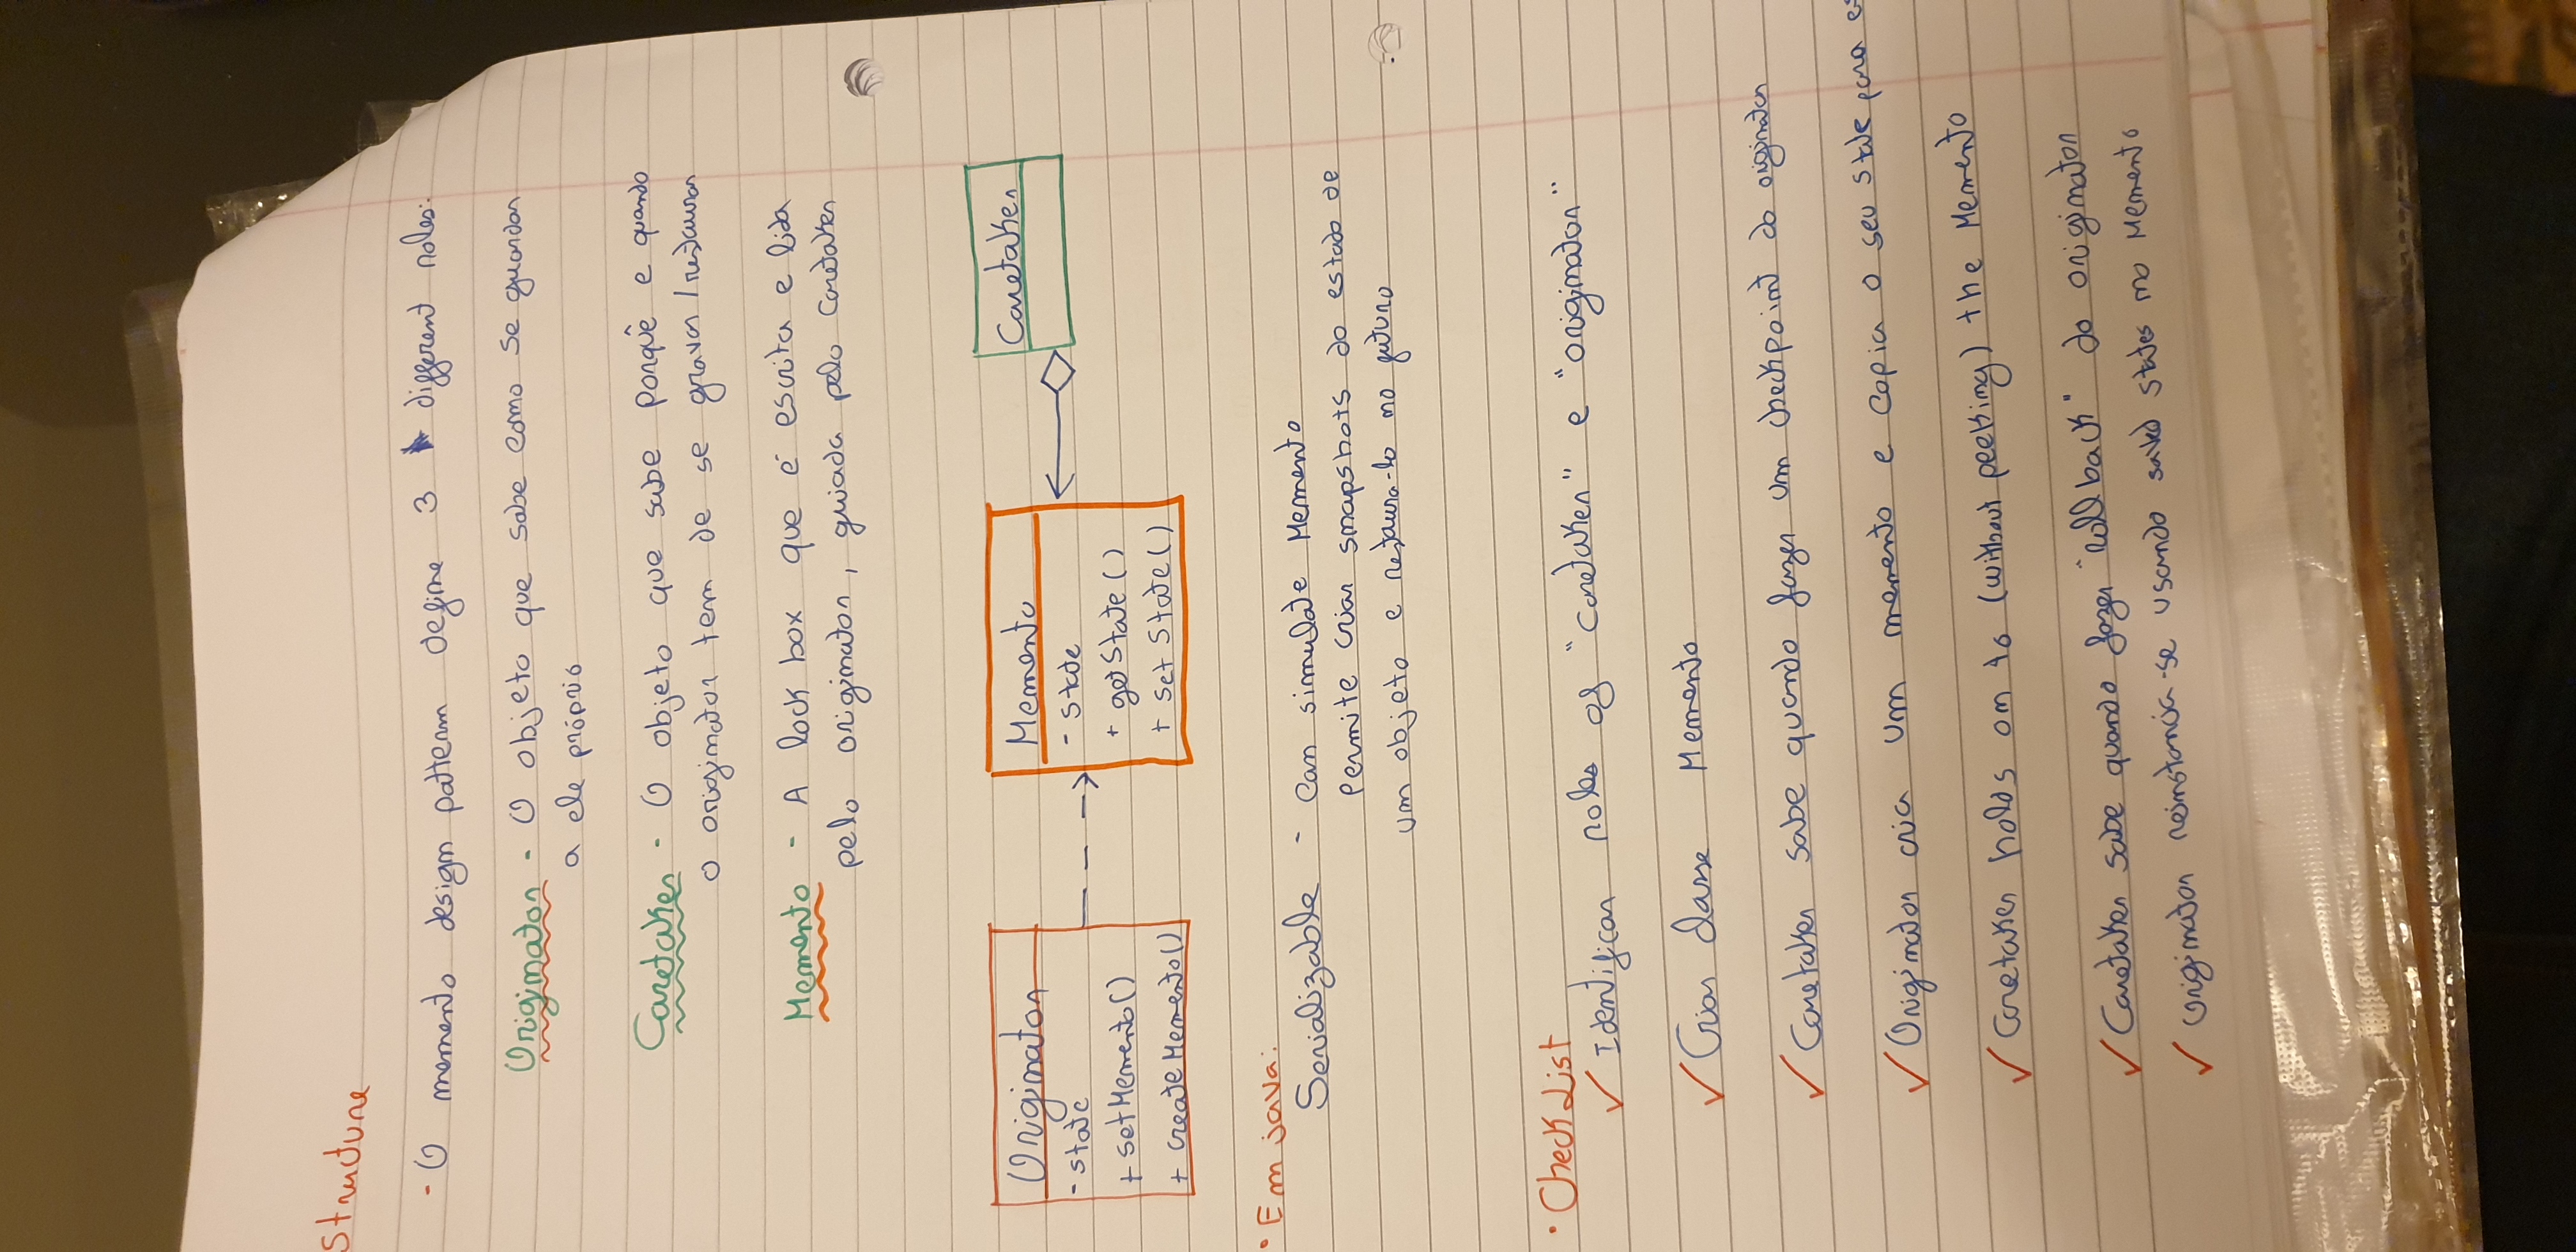 Structure
- O memento design pattern define 3 different roles:
Originator - O objeto que sabe como se guardar
a ele próprio
Caretaker - O objeto que sabe porquê e quando
o originator tem de se gravar/restaurar
Memento - A lock box que é escrita e lida
pelo originator, guiada pelo Caretaker
Originator
- state
+ setMemento()
+ createMemento()
Memento
- State
+ getState()
+ setState()
Caretaker
• Em java:
Serializable - Can simulate Memento
Permite criar snapshots do estado de
um objeto e restaura-lo no futuro
• CheckList
✓ Identificar roles of "caretaker" e "originator"
✓ Criar classe Memento
✓ Caretaker sabe quando fazer um checkpoint do originator
✓ Originator cria um memento e copia o seu state para
✓ Caretaker holds on to (without peeking) the Memento
✓ Caretaker sabe quando fazer "rollback" do originator
✓ Originator reinstancia-se usando saved states no Memento